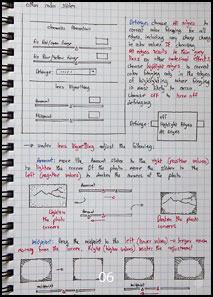 other color sliders
chromatic Aberration
Fix Red/Cyan Fringe
Fix Blue/Yellow Fringe
Defringe:
lens Vignetting
Amount
Midpoint
Defringe: choose All edges to
correct color fringing for all
edges, including any sharp change
in color values. If choosing
All edges results in thin gray
lines or other undesired effects
choose highlight edges to correct
color fringing only in the edges
of highlights, where fringing
is most likely to occur.
Choose off to turn off
defringing.
Defringe:
off
Highlight edges
All edges
→ under lens vignetting adjust the following:
Amount: move the Amount slider to the right (positive values)
to lighten the corners of the photo. move the slider to the
left (negative values) to darken the corners of the photo
Amount
Amount
Darken
the photo
corners
lighten
the photo
corners
Midpoint: Drag the midpoint to the left (lower value) → larger area
away from the corners. Right (higher value) restrict the adjustment
06